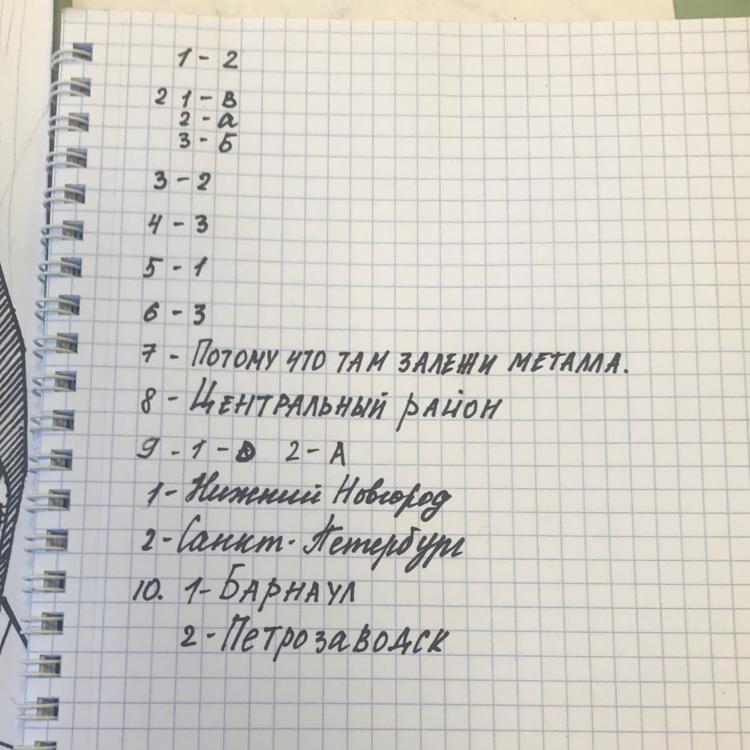 1 - 2
2 1 - В
2 - а
3 - Б
3 - 2
4 - 3
5 - 1
6 - 3
7 - Потому что там залежи металла.
8 - Центральный район
9 - 1 - 2 - А
1 - Нижний Новгород
2 - Санкт-Петербург
10. 1 - Барнаул
2 - Петрозаводск